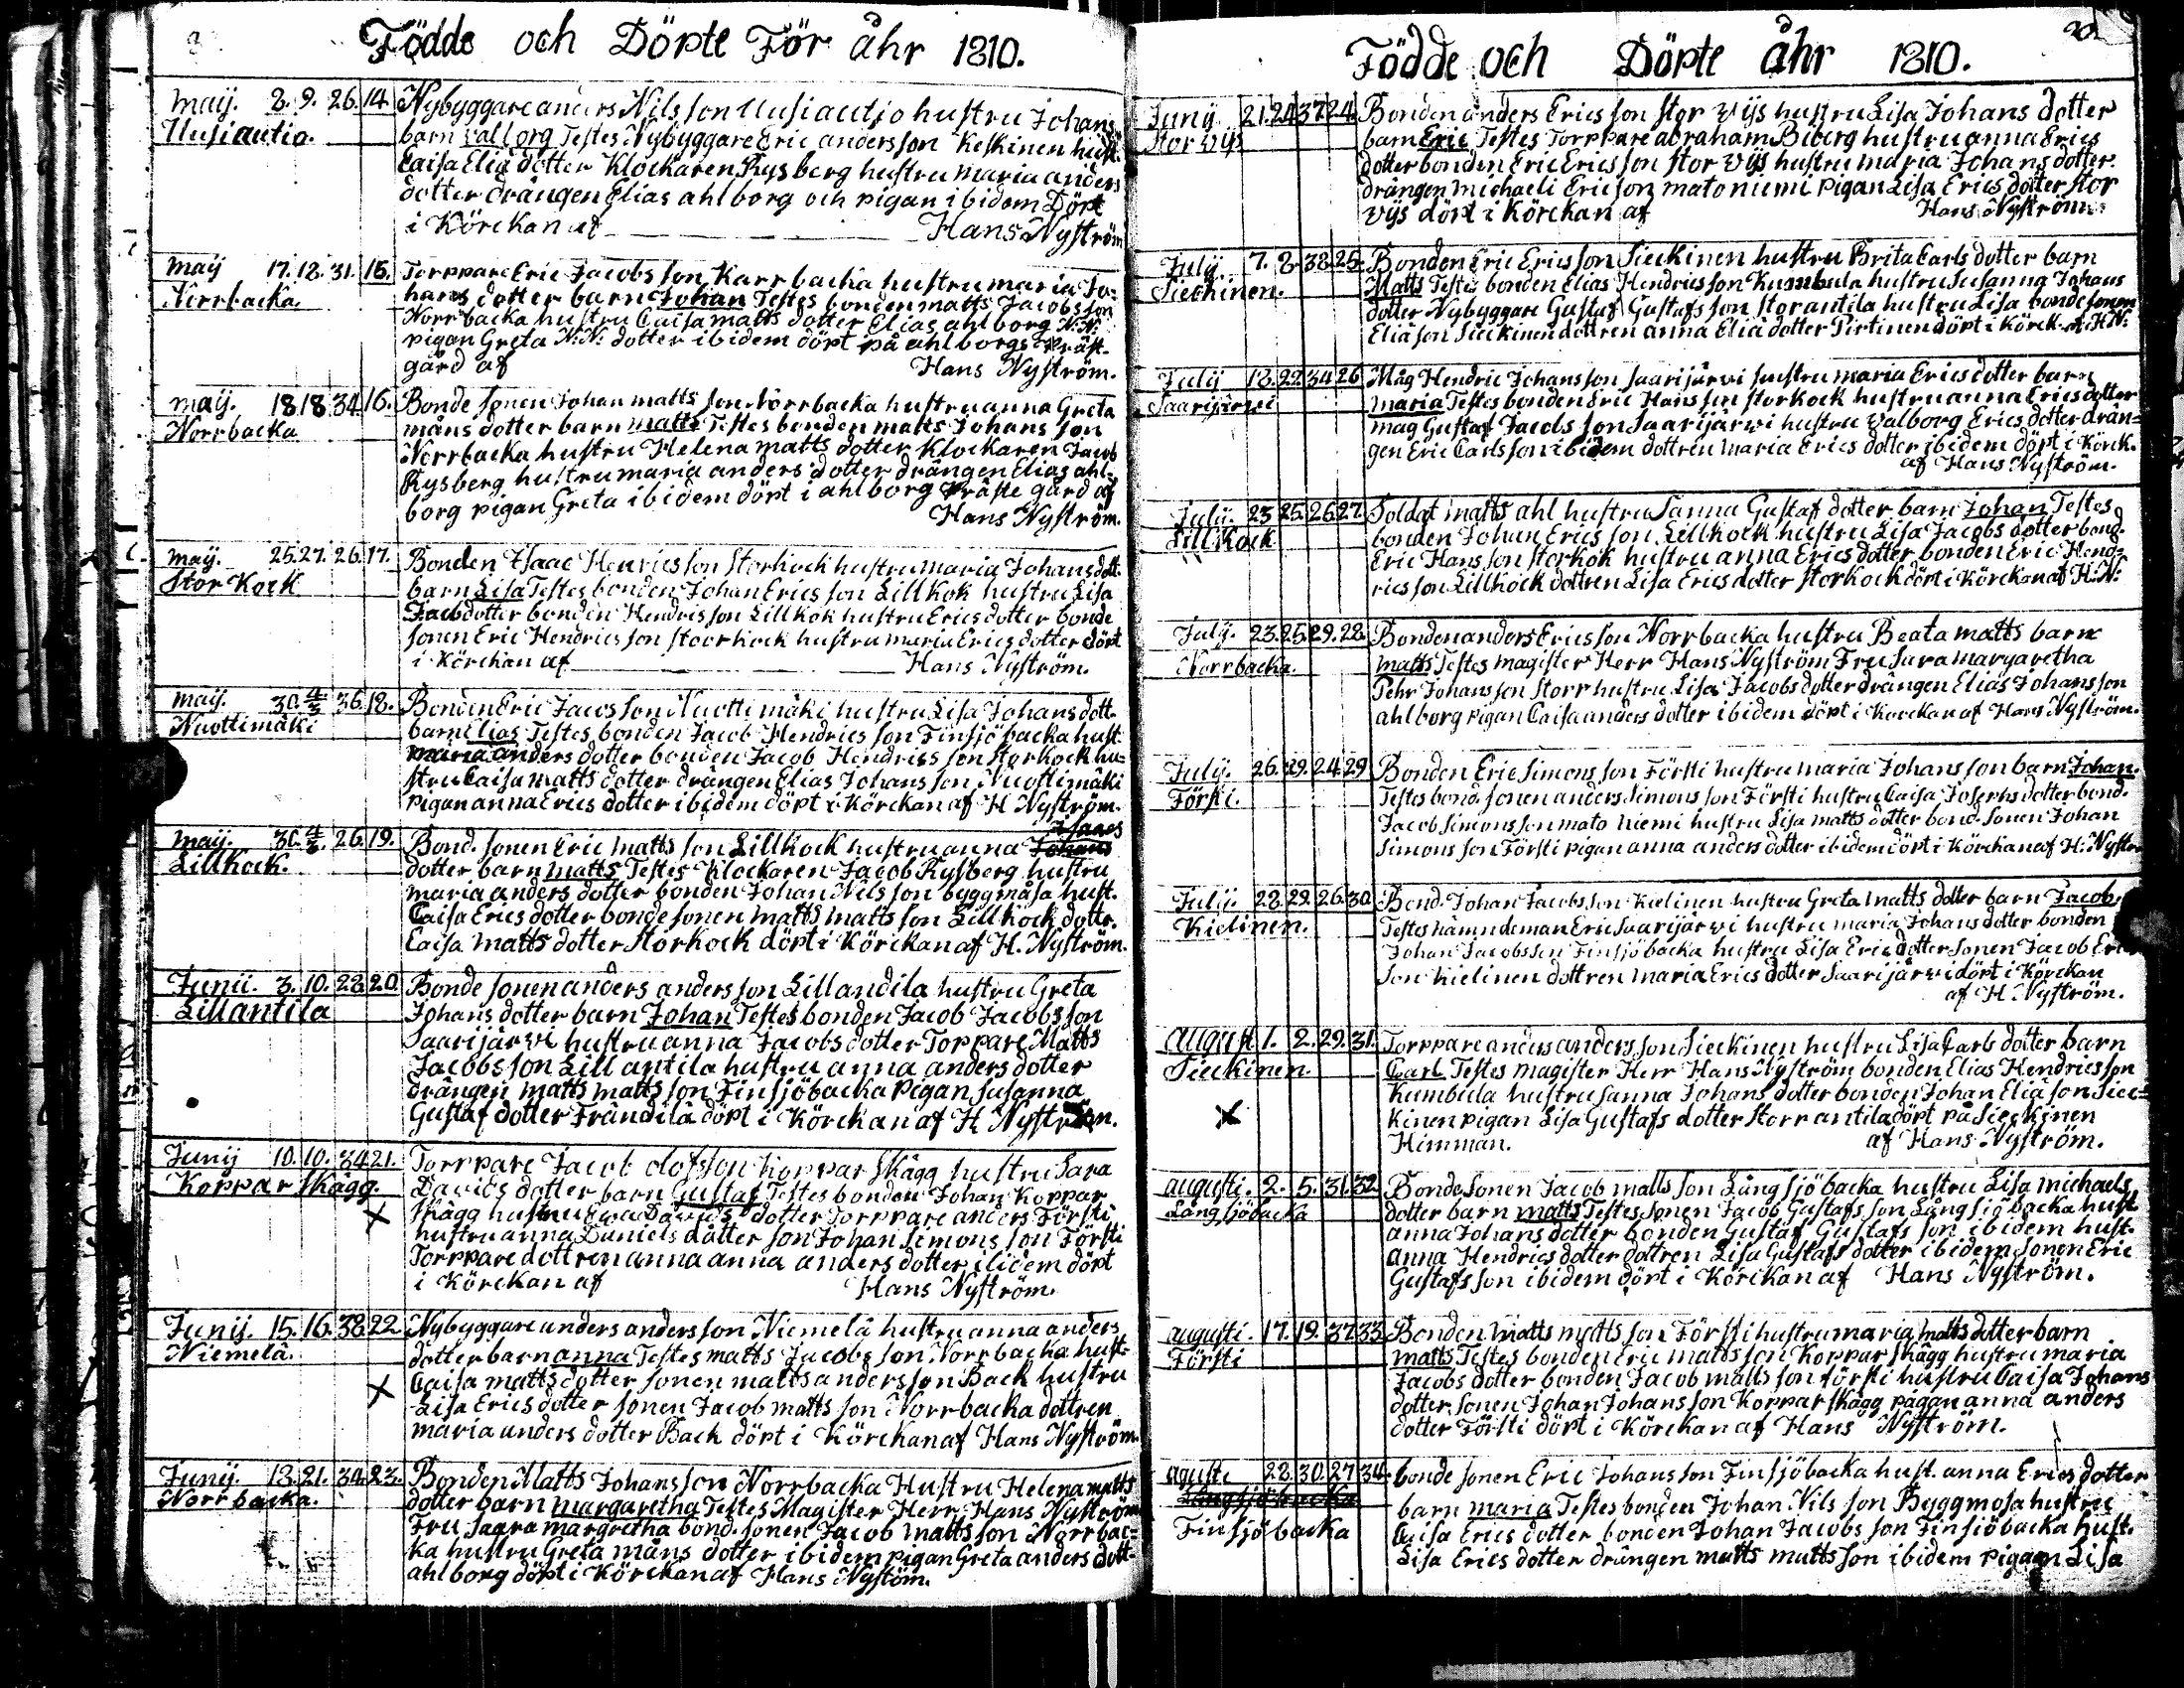 Födde och Döpte För åhr 1810.
Maij. 8. 9. 26. 14. Nybyggare anders Nils son Uusiautio hustru Johans
Uusiautio. barn valborg Testes Nybyggare Eric anders son Keskinen hust.
Caisa Eliä dotter Klockaren Rysberg hustru maria anders
dotter drängen Elias ahlborg och pigan ibidem Döpt
i Körckan af Hans Nyström
Maij 17. 18. 31. 15. Torppare Eric Jacobs son Karrbacka hustru maria Jo-
Norrbacka. hans dotter barn Johan Testes bonden matts Jacobs son
Norrbacka hustru Caisa matts dotter Elias ahlborg N:N:
pigan Greta N:N: dotter ibidem döpt på ahlborgs Präst-
gård af Hans Nyström.
Maij. 18 18 34 16. Bonde sonen Johan matts son Norrbacka hustru anna Greta
Norrbacka måns dotter barn matts Testes bonden matts Johans son
Norrbacka hustru Helena matts dotter Klockaren Jacob
Rysberg hustru maria anders dotter drängen Elias ahl-
borg pigan Greta ibidem döpt i ahlborg Präste gård af
Hans Nyström.
Maij. 25. 27. 26. 17. Bonden Isaac Henrics son Storkock hustru maria Johans dott.
Stor Kock barn Lisa Testes bonden Johan Erics son Lillkok hustru Lisa
Jacobdotter bonden Hendrisson Lillkok hustru Erics dotter bonde
sonen Eric Hendrics son stoorkock hustru maria Erics dotter döpt
i Körckan af Hans Nyström.
Maij. 30. 4/3 36. 18. Bonden Eric Jacobs son Nuottimäki hustru Lisa Johans dott.
Nuottimäki barn Elias Testes bonden Jacob Hendrics son Finsjöbacka hust.
maria anders dotter bonden Jacob Hendriss son Storkock hu-
stru Caisa matts dotter drängen Elias Johans son Nuottimäki
pigan anna Erics dotter ibidem döpt i Körckan af H Nyström.
Isaacs
Maij. 31. 4/6. 26. 19. Bond. sonen Eric matts son Lillkock hustru anna Johans
Lillkock. dotter barn matts Testes Klockaren Jacob Rysberg hustru
maria anders dotter bonden Johan Nils son byggmåsa hust.
Caisa Erics dotter bonde sonen matts matts son Lillkock dotter.
Caisa matts dotter Storkock döpt i Körckan af H. Nyström.
Junii. 3. 10. 28 20. Bonde sonen anders anders son Lillandila hustru Greta
Lillantila Johans dotter barn Johan Testes bonden Jacob Jacobs son
Saarijärwi hustru anna Jacobs dotter Torppare Matts
Jacobs son Lillantila hustru anna anders dotter
drängen matts matts son Finsjöbacka pigan Susanna
Gustaf dotter Frändilä döpt i Körckan af H Nyström.
Junij 10. 10. 34 21. Torppare Jacob olofs son Kopparskägg hustru Sara
Koppar skägg. Davids dotter barn Gustaf Testes bonden Johan Koppar
skägg hustru Ewa Davids dotter Torppare anders Försti
hustru anna Daniels dotter son Johan Simons son Försti
Torppare dottren anna anna anders dotter ibidem döpt
i Körckan af Hans Nyström.
Junij. 15. 16. 38 22. Nybyggare anders anders son Niemelä hustru anna anders
Niemelä. dotter barn anna Testes matts Jacobs son Norrbacka hust.
Caisa matts dotter sonen matts anders son Back hustru
Lisa Erics dotter sonen Jacob matts son Norrbacka dottren
maria anders dotter Back döpt i Körckan af Hans Nyström.
Junij. 13. 21. 34. 23. Bonden Matts Johans son Norrbacka Hustru Helena matts
Norrbacka. dotter barn margaretha Testes Magister Herr Hans Nyström
Fru Saara margretha bond. sonen Jacob matts son Norrbac-
ka hustru Greta måns dotter ibidem pigan Greta anders dott-
ahlborg döpt i Körckan af Hans Nyström.
Födde och Döpte åhr 1810.
Junij 21. 24 37 24. Bonden anders Erics son Storwijs hustru Lisa Johans dotter
Storwijs barn Eric Testes Torppare abraham Biberg hustru anna Erics
dotter bonden Eric Erics son storwijs hustru maria Johans dotter.
drängen michaeli Ericson matoniemi pigan Lisa Erics dotter stor
wijs döpt i Körckan af Hans Nyström.
Julij 7. 8. 38 25. Bonden Eric Erics son Sieckinen hustru Brita Carls dotter barn
Sieckinen. Matts Testes bonden Elias Hendrics son Kumbula hustru Susanna Johans
dotter Nybyggare Gustaf Gustafs son storantila hustru Lisa bonde sonen
Eliä son Sieckinen dottren anna Eliä dotter Pirtinen döpt i Körck. af H N:
Julij 13. 22. 34 26 Måg Hendric Johans son saarijärwi hustru maria Erics dotter barn
Saarijärwi maria Testes bonden Eric Hans son storkock hustru anna Erics dotter
mag Gustaf Jacobs son Saarijärwi hustru Walborg Erics dotter drän-
gen Eric Carls son ibidem dottren maria Erics dotter ibidem döpt i Körck.
af Hans Nyström.
Julij. 23 25. 26 27. Soldat matts ahl hustru Sanna Gustaf dotter barn Johan Testes
Lillkock bonden Johan Erics son Lillkock hustru Lisa Jacobs dotter bond.
Eric Hans son storkok hustru anna Erics dotter bonden Eric Hend-
rics son Lillkock dottren Lisa Erics dotter storkock döpt i Körckan af H: N:
Julij. 23. 25. 29. 28. Bonden anders Erics son Norrbacka hustru Beata matts barn
Norrbacka. matts Testes magister Herr Hans Nyström Fru Sara margaretha
Pehr Johans son Storr hustru Lisa Jacobs dotter drängen Elias Johans son
ahlborg pigan Caisa anders dotter ibidem döpt i Körckan af Hans Nyström.
Julij. 26. 29. 24. 29 Bonden Eric Simons son Försti hustru maria Johans son barn Johan.
Försti. Testes bond. sonen anders Simons son Försti hustru Caisa Josephs dotter bond.
Jacob Simons son mato niemi hustru Lisa matts dotter bond. sonen Johan
Simons son Försti pigan anna anders dotter ibidem döpt i Körckan af H: Nyström
Julij. 28. 29. 26. 30. Bond. Johan Jacobs son Kielinen hustru Greta matts dotter barn Jacob
Kielinen. Testes nämndeman Eric Saarijärwi hustru maria Johans dotter bonden
Johan Jacobs son Finsjöbacka hustru Lisa Erics dotter sonen Jacob Erics
son Kielinen dottren maria Erics dotter Saarijärwi döpt i Körckan
af H. Nyström.
August 1. 2. 29. 31. Torppare anders anders son Sieckinen hustru Lisa Carls dotter barn
Sieckinen. Carl Testes magister Herr Hans Nyström bonden Elias Hendrics son
Kumbula hustru Sanna Johans dotter bonden Johan Eliä son Siec-
kinen pigan Lisa Gustafs dotter Storrantila döpt på Sieckinen
Himman. af Hans Nyström.
augusti. 2. 5. 31. 32 Bonde sonen Jacob matts son Långsjöbacka hustru Lisa michaels
Långsjöbacka dotter barn matts Testes sonen Jacob Gustafs son Långsjöbacka hust
anna Johans dotter bonden Gustaf Gustafs son ibidem hust.
anna Hendrics dotter dottren Lisa Gustafs dotter ibidem sonen Eric
Gustafs son ibidem döpt i Körckan af Hans Nyström.
augusti. 17. 19. 37 33 Bonden Matts matts son Försti hustru maria matts dotter barn
Försti matts Testes bonden Eric matts son Koppar skägg hustru maria
Jacobs dotter bonden Jacob matts son försti hustru Caisa Johans
dotter sonen Johan Johans son Koppar skägg pigan anna anders
dotter Försti döpt i Körckan af Hans Nyström.
agusti 28. 30. 27 34. bonde sonen Eric Johans son Finsjöbacka hust. anna Erics dotter
Långsjöbacka barn maria Testes bonden Johan Nils son Byggmosa hustru
Finsjöbacka Caisa Erics dotter bonden Johan Jacobs son Finsjöbacka hust.
Lisa Erics dotter drängen matts matts son ibidem pigan Lisa